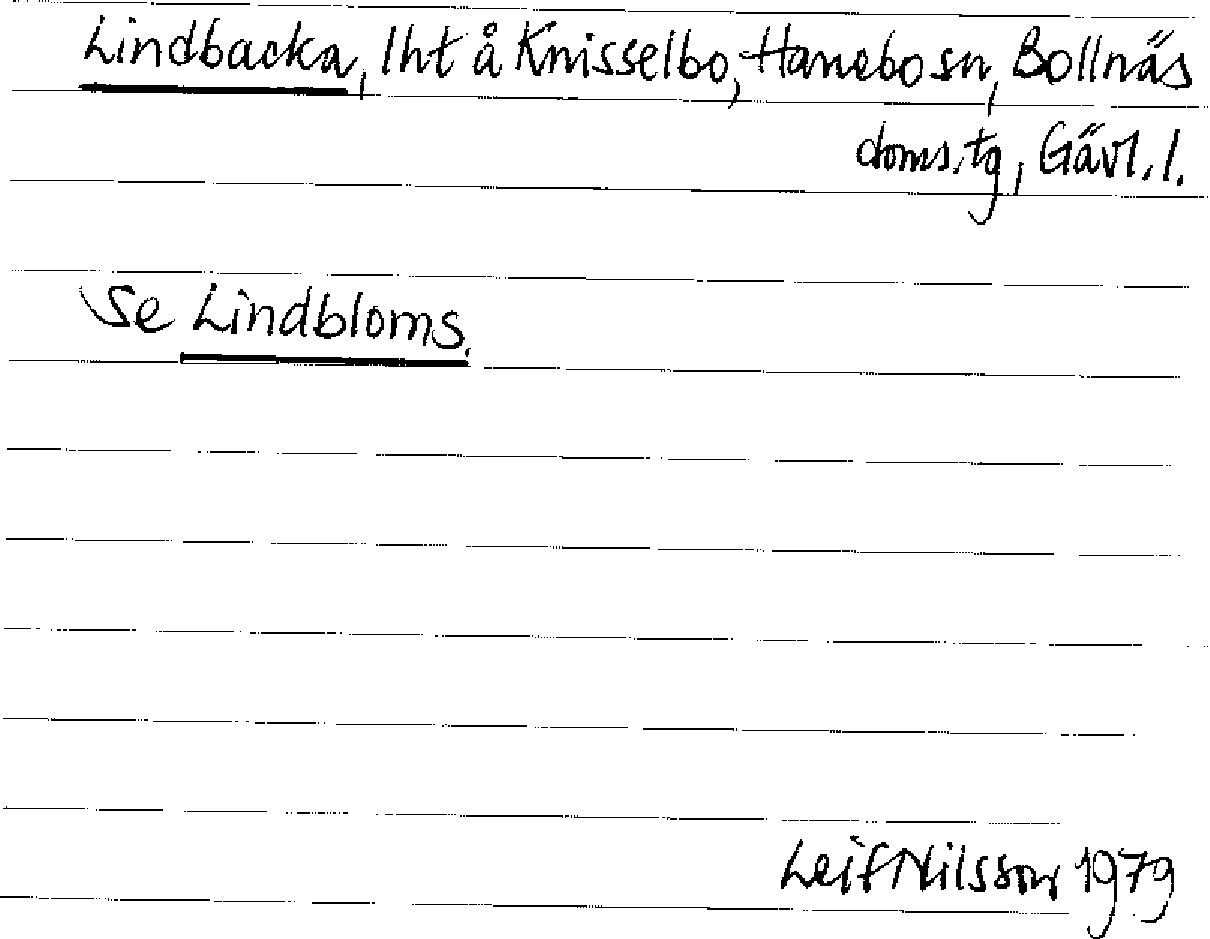 Lindbacka, lht å Knisselbo, Hanebo sn, Bollnäs
doms.tg, Gävl. l.
Se Lindbloms.
Leif Nilsson 1979